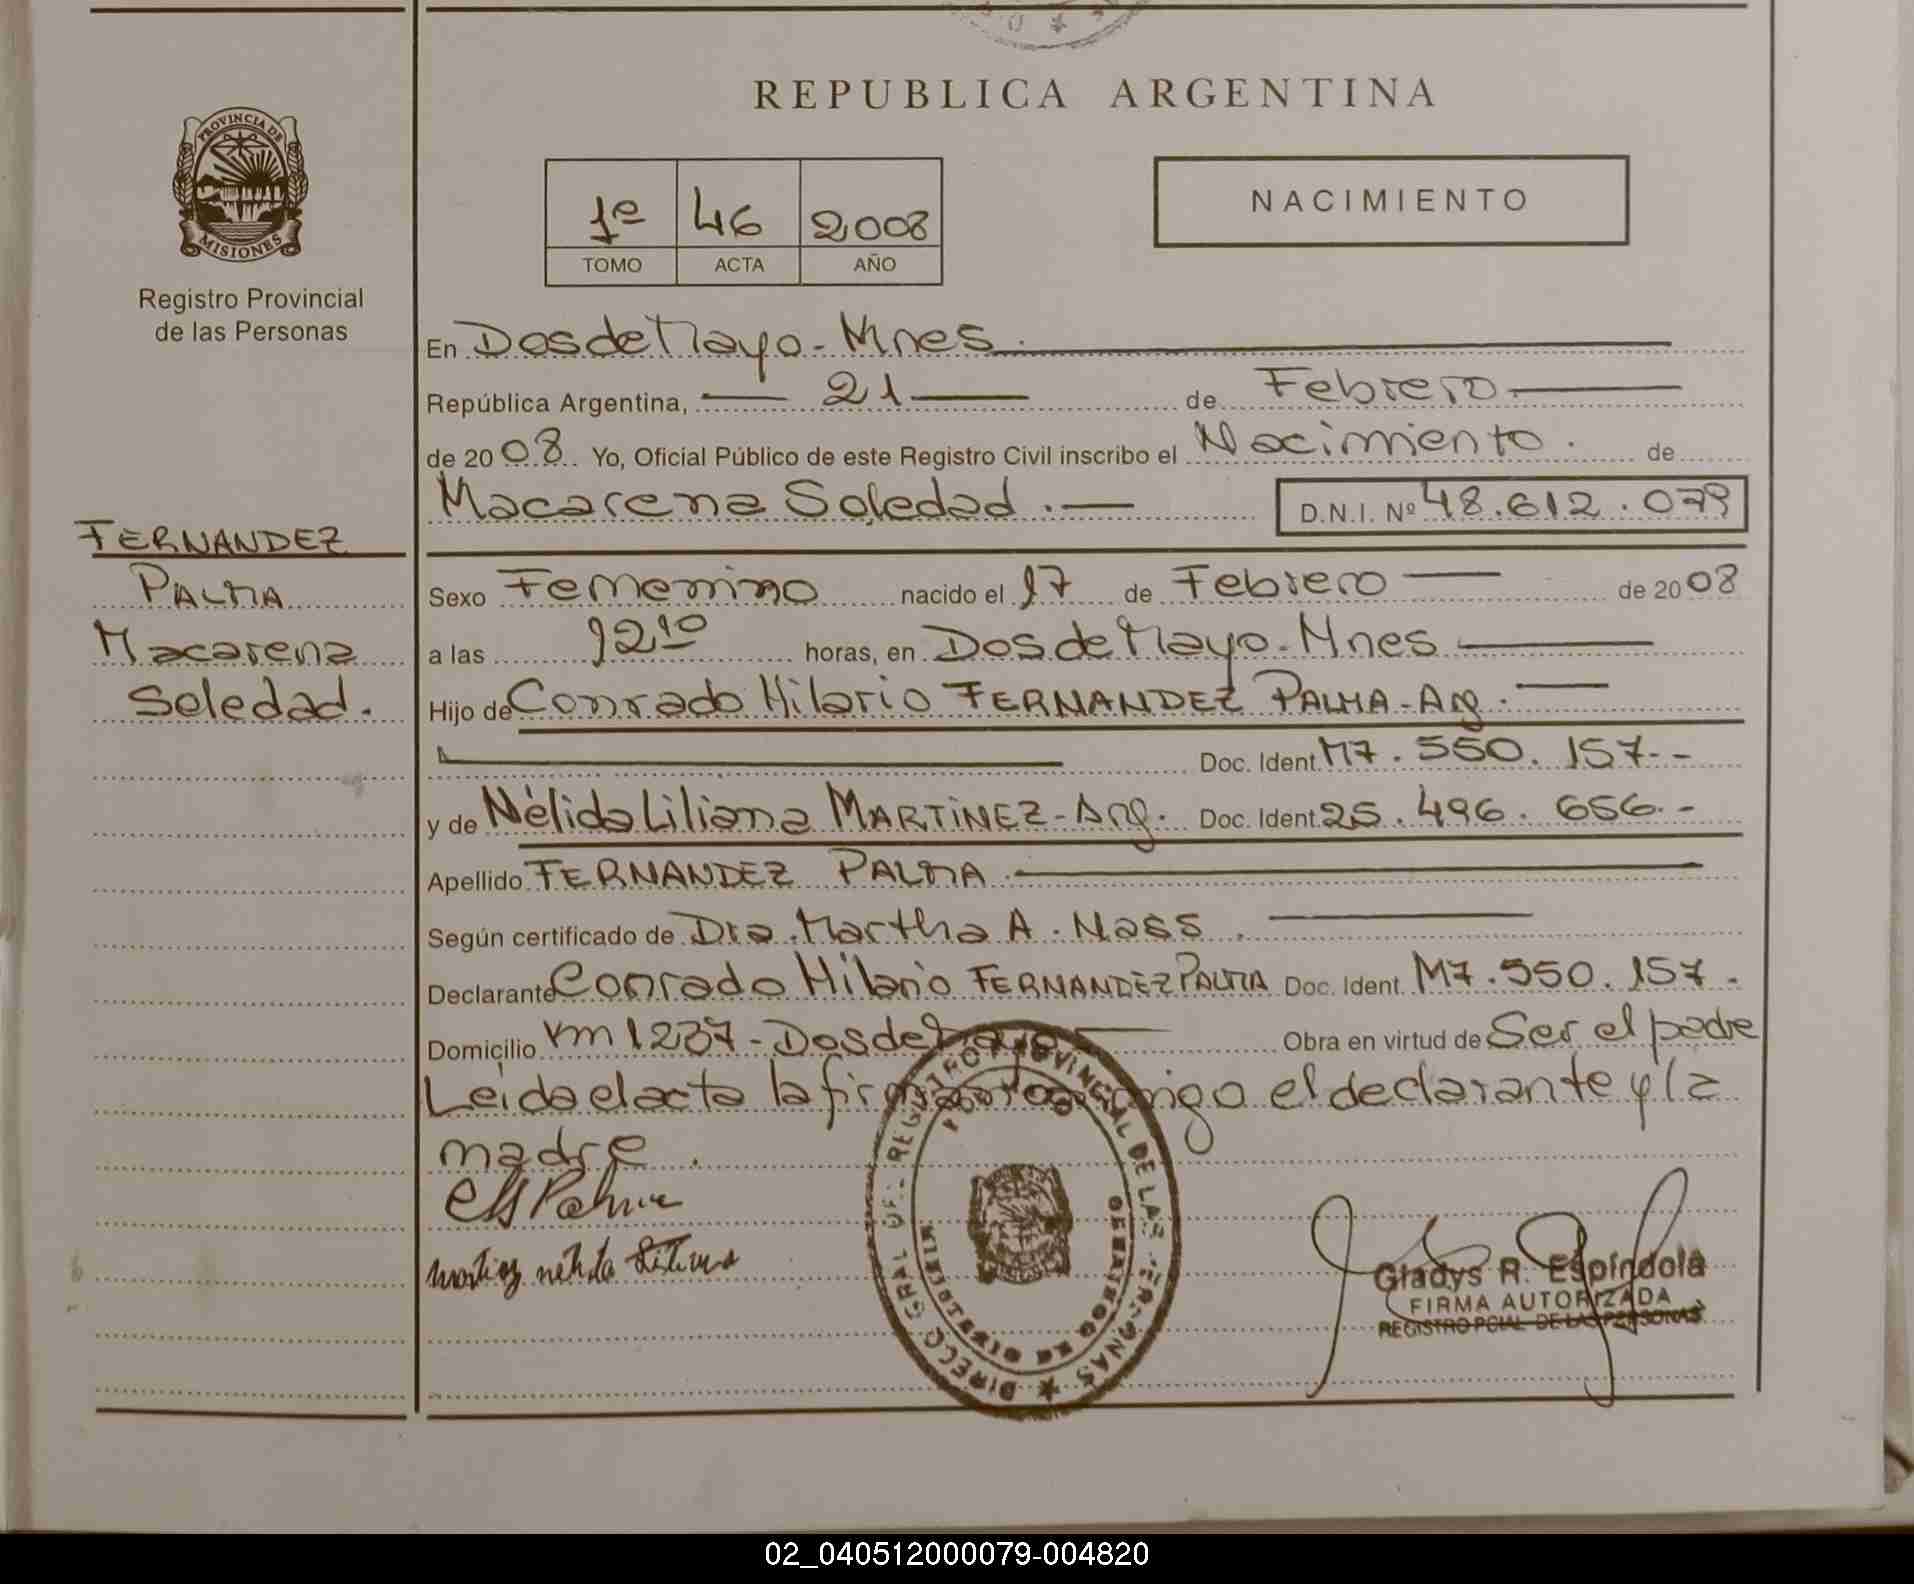 REPUBLICA ARGENTINA
PROVINCIA DE
MISIONES
Registro Provincial
de las Personas
1º 46 2008
TOMO ACTA AÑO
NACIMIENTO
En Dos de Mayo - Mnes.
República Argentina, 21 de Febrero
de 2008. Yo, Oficial Público de este Registro Civil inscribo el Nacimiento. de
Macarena Soledad. D.N.I. Nº 48.612.079
FERNANDEZ
PALMA
Macarena
Soledad.
Sexo Femenino nacido el 17 de Febrero de 2008
a las 12 10 horas, en Dos de Mayo - Mnes
Hijo de Conrado Hilario FERNANDEZ PALMA - Arg.
Doc. Ident. M7.550.157.-
y de Nélida Liliana MARTINEZ - Arg. Doc. Ident. 25.496.656.-
Apellido FERNANDEZ PALMA
Según certificado de Dra. Martha A. Nass.
Declarante Conrado Hilario FERNANDEZ PALMA Doc. Ident. M7.550.157.-
Domicilio Km 1237 - Dos de Mayo Obra en virtud de Ser el padre
Leida el acta la firman conmigo el declarante y la
madre.
DIRECC. GRAL. DEL REGISTRO PROVINCIAL DE LAS PERSONAS
Gladys R. Espíndola
FIRMA AUTORIZADA
REGISTRO PCIAL. DE LAS PERSONAS
02_040512000079-004820